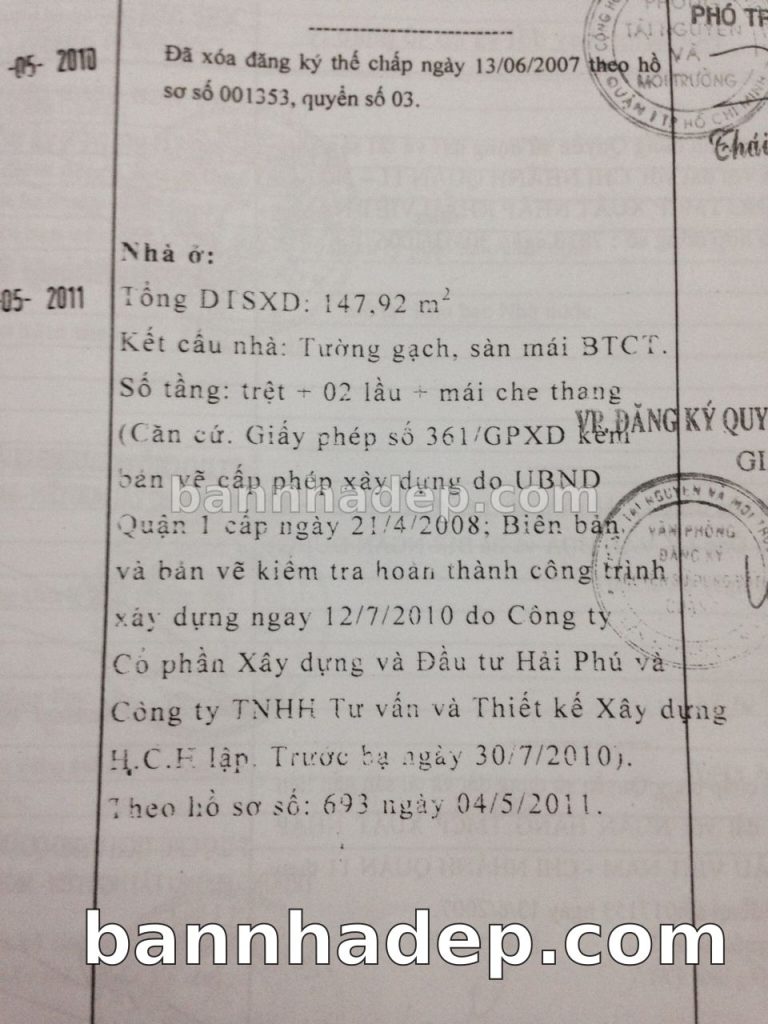 PHÓ TR
TÀI NGUYÊN
VÀ
MÔI TRƯỜNG
QUẬN 1 TP HỒ CHÍ MINH
Thái
-05- 2010
Đã xóa đăng ký thế chấp ngày 13/06/2007 theo hồ
sơ số 001353, quyển số 03.
Nhà ở:
05- 2011
Tổng DTSXD: 147,92 m²
Kết cấu nhà: Tường gạch, sàn mái BTCT.
Số tầng: trệt + 02 lầu + mái che thang
(Căn cứ. Giấy phép số 361/GPXD kèm
VP. ĐĂNG KÝ QUY
GI
bản vẽ cấp phép xây dựng do UBND
bannhadep.com
Quận 1 cấp ngày 21/4/2008; Biên bản
VĂN PHÒNG
ĐĂNG KÝ
và bản vẽ kiểm tra hoàn thành công trình
xây dựng ngay 12/7/2010 do Công ty
Cổ phần Xây dựng và Đầu tư Hải Phú và
Công ty TNHH Tư vấn và Thiết kế Xây dựng
lập. Trước bạ ngày 30/7/2010).
Theo hồ sơ số: 693 ngày 04/5/2011.
bannhadep.com